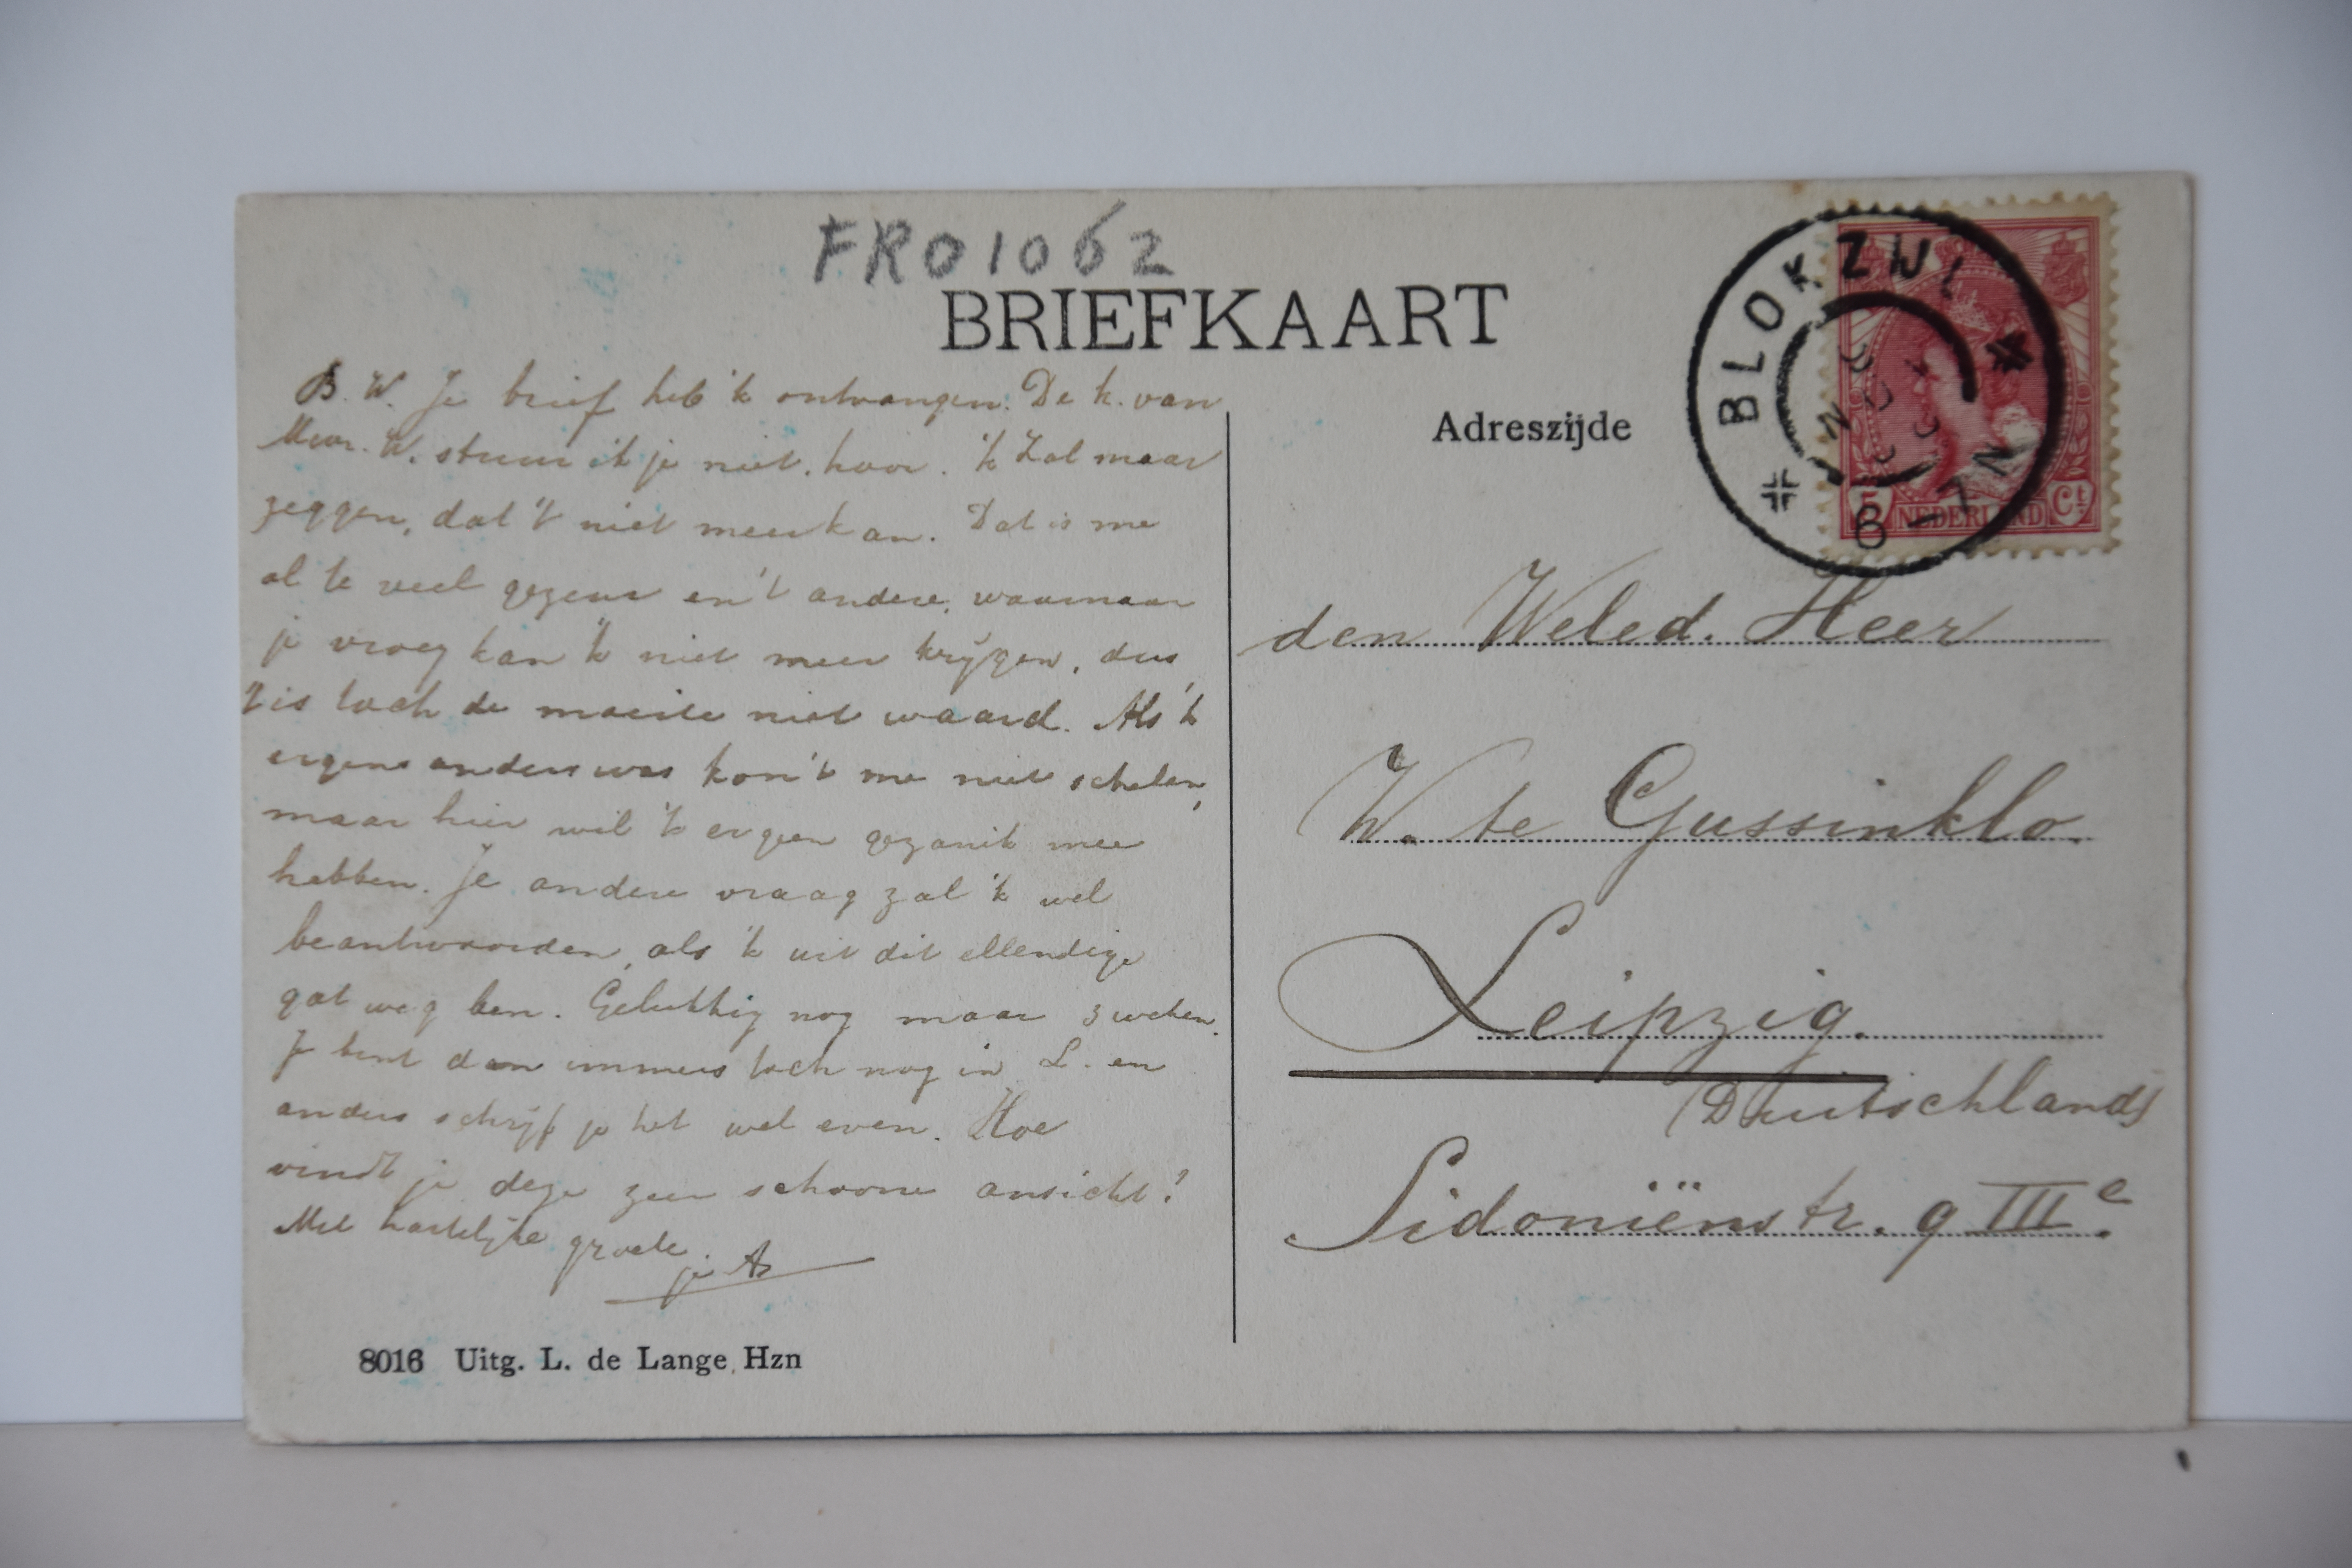 FRO1062
BRIEFKAART
B. W. Je brief heb 'k ontvangen. De k. van
Mevr. W. stuur ik je niet, hoor. 'k Zal maar
zeggen, dat 't niet meer kan. Dat is me
al te veel gezeur en 't andere, waarnaar
je vroeg kan 'k niet meer krijgen, dus
't is toch de moeite niet waard. Als 'k
ergens anders was kon 't me niet schelen,
maar hier wil 'k er geen gezanik mee
hebben. Je andere vraag zal 'k wel
beantwoorden, als 'k uit dit ellendige
gat weg ben. Gelukkig nog maar 3 weken.
Je bent dan immers toch nog in L. en
anders schrijf je het wel even. Hoe
vindt je deze zeer schoone ansicht?
Met hartelijke groete.
je A
8016 Uitg. L. de Lange Hzn
Adreszijde
BLOKZIJL
5 NEDERLAND Ct
den Weled. Heer
W. te Gussinklo.
Leipzig.
(Deutschland)
Sidoniënstr. 9 IIIe.